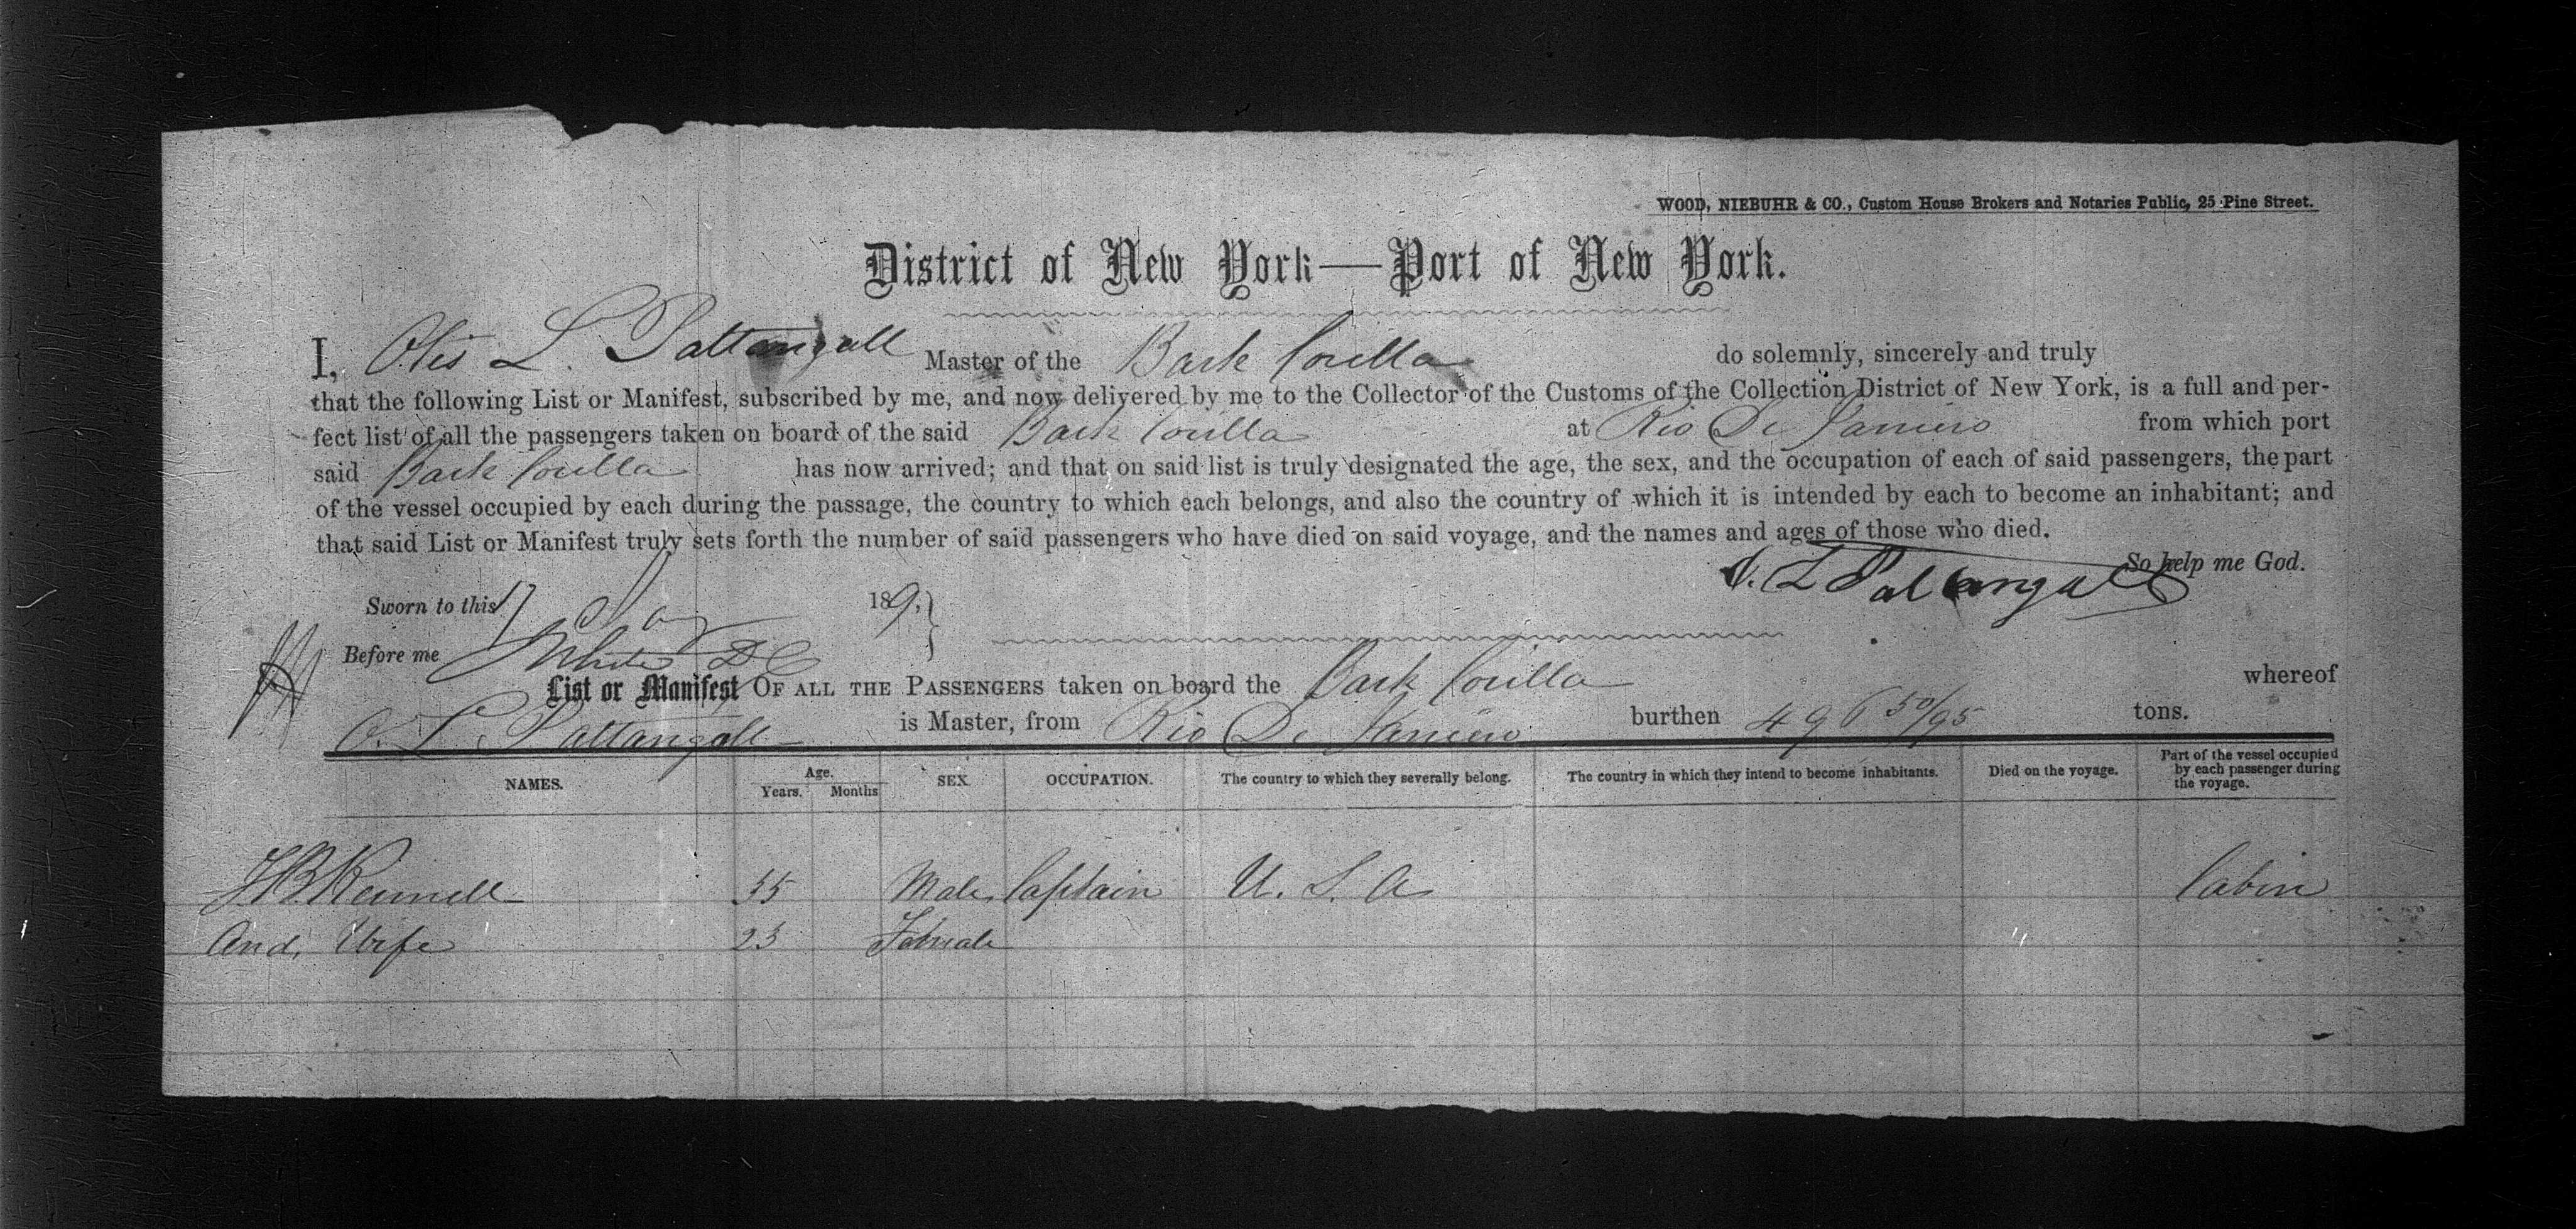 WOOD, NIEBUHR & CO., Custom House Brokers and Notaries Public, 25 Pine Street.
District of New York—Port of New York.
I, Otis L. Pattangall Master of the Bark Corilla do solemnly, sincerely and truly
that the following List or Manifest, subscribed by me, and now delivered by me to the Collector of the Customs of the Collection District of New York, is a full and per-
fect list of all the passengers taken on board of the said Bark Corilla at Rio De Janiero from which port
said Bark Corilla has now arrived; and that on said list is truly designated the age, the sex, and the occupation of each of said passengers, the part
of the vessel occupied by each during the passage, the country to which each belongs, and also the country of which it is intended by each to become an inhabitant; and
that said List or Manifest truly sets forth the number of said passengers who have died on said voyage, and the names and ages of those who died.
So help me God.
O. L Pattangall
Sworn to this 17 189
Before me White D C
List or Manifest OF ALL THE PASSENGERS taken on board the Bark Corilla whereof
O. L. Pattangall is Master, from Rio De Janiero burthen 496 50/95 tons.
NAMES. Age. Years. Months SEX. OCCUPATION. The country to which they severally belong. The country in which they intend to become inhabitants. Died on the voyage. Part of the vessel occupied by each passenger during the voyage.
35 Male Captain U. S. A Cabin
And, Wife 23 Female